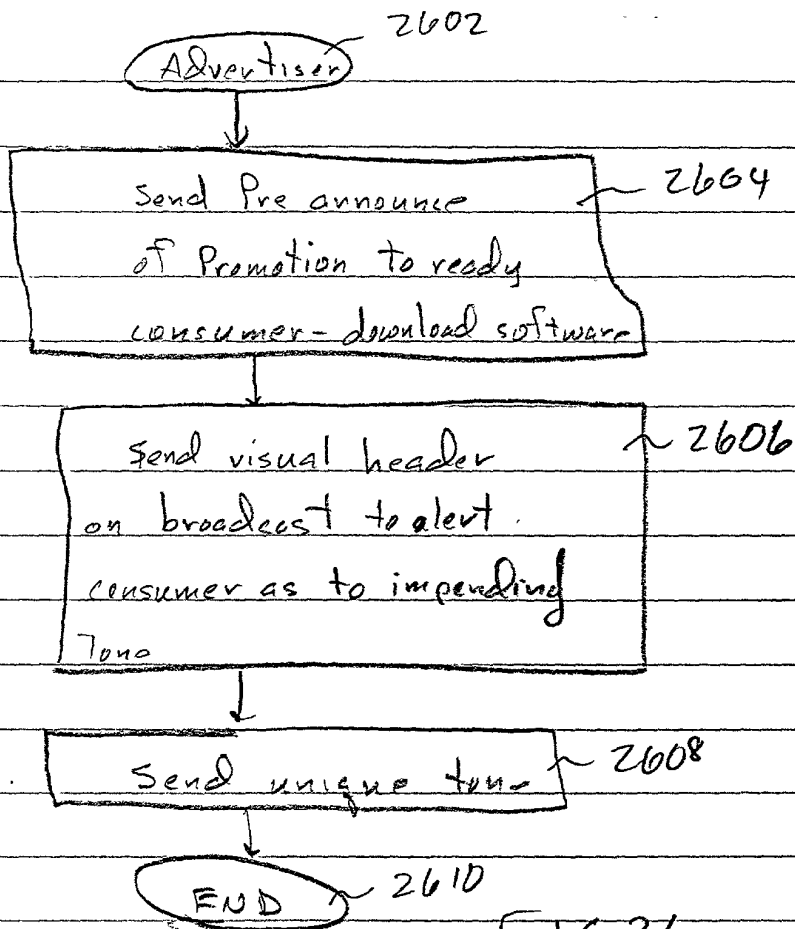 2602
Advertiser
2604
Send Pre announce
of Promotion to ready
consumer - download software
2606
Send visual header
on broadcast to alert
consumer as to impending
Tone
2608
Send unique tone
END
2610